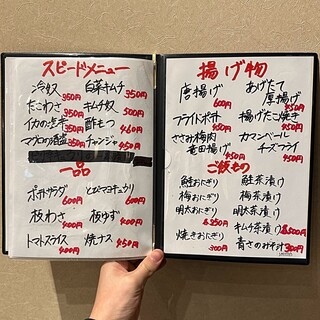 スピードメニュー
冷奴 350円
白菜キムチ 350円
たこわさ 350円
キムチ奴 500円
イカの塩辛 350円
酢もつ 460円
マグロの酒盗 350円
チャンジャ 450円
一品
ポテトサラダ 600円
とまマヨキュウリ 600円
板わさ 400円
板ゆず 400円
トマトスライス 400円
焼ナス 450円
揚げ物
唐揚げ 600円
あげたて厚揚げ 450円
フライドポテト 450円
揚げたこ焼き 450円
ささみ梅肉竜田揚げ 450円
カマンベールチーズフライ 450円
ご飯もの
鮭おにぎり
鮭茶漬け
梅おにぎり
梅茶漬け
明太おにぎり
明太茶漬け
各250円
焼きおにぎり 300円
キムチ茶漬け
各500円
青さのみそ汁 300円